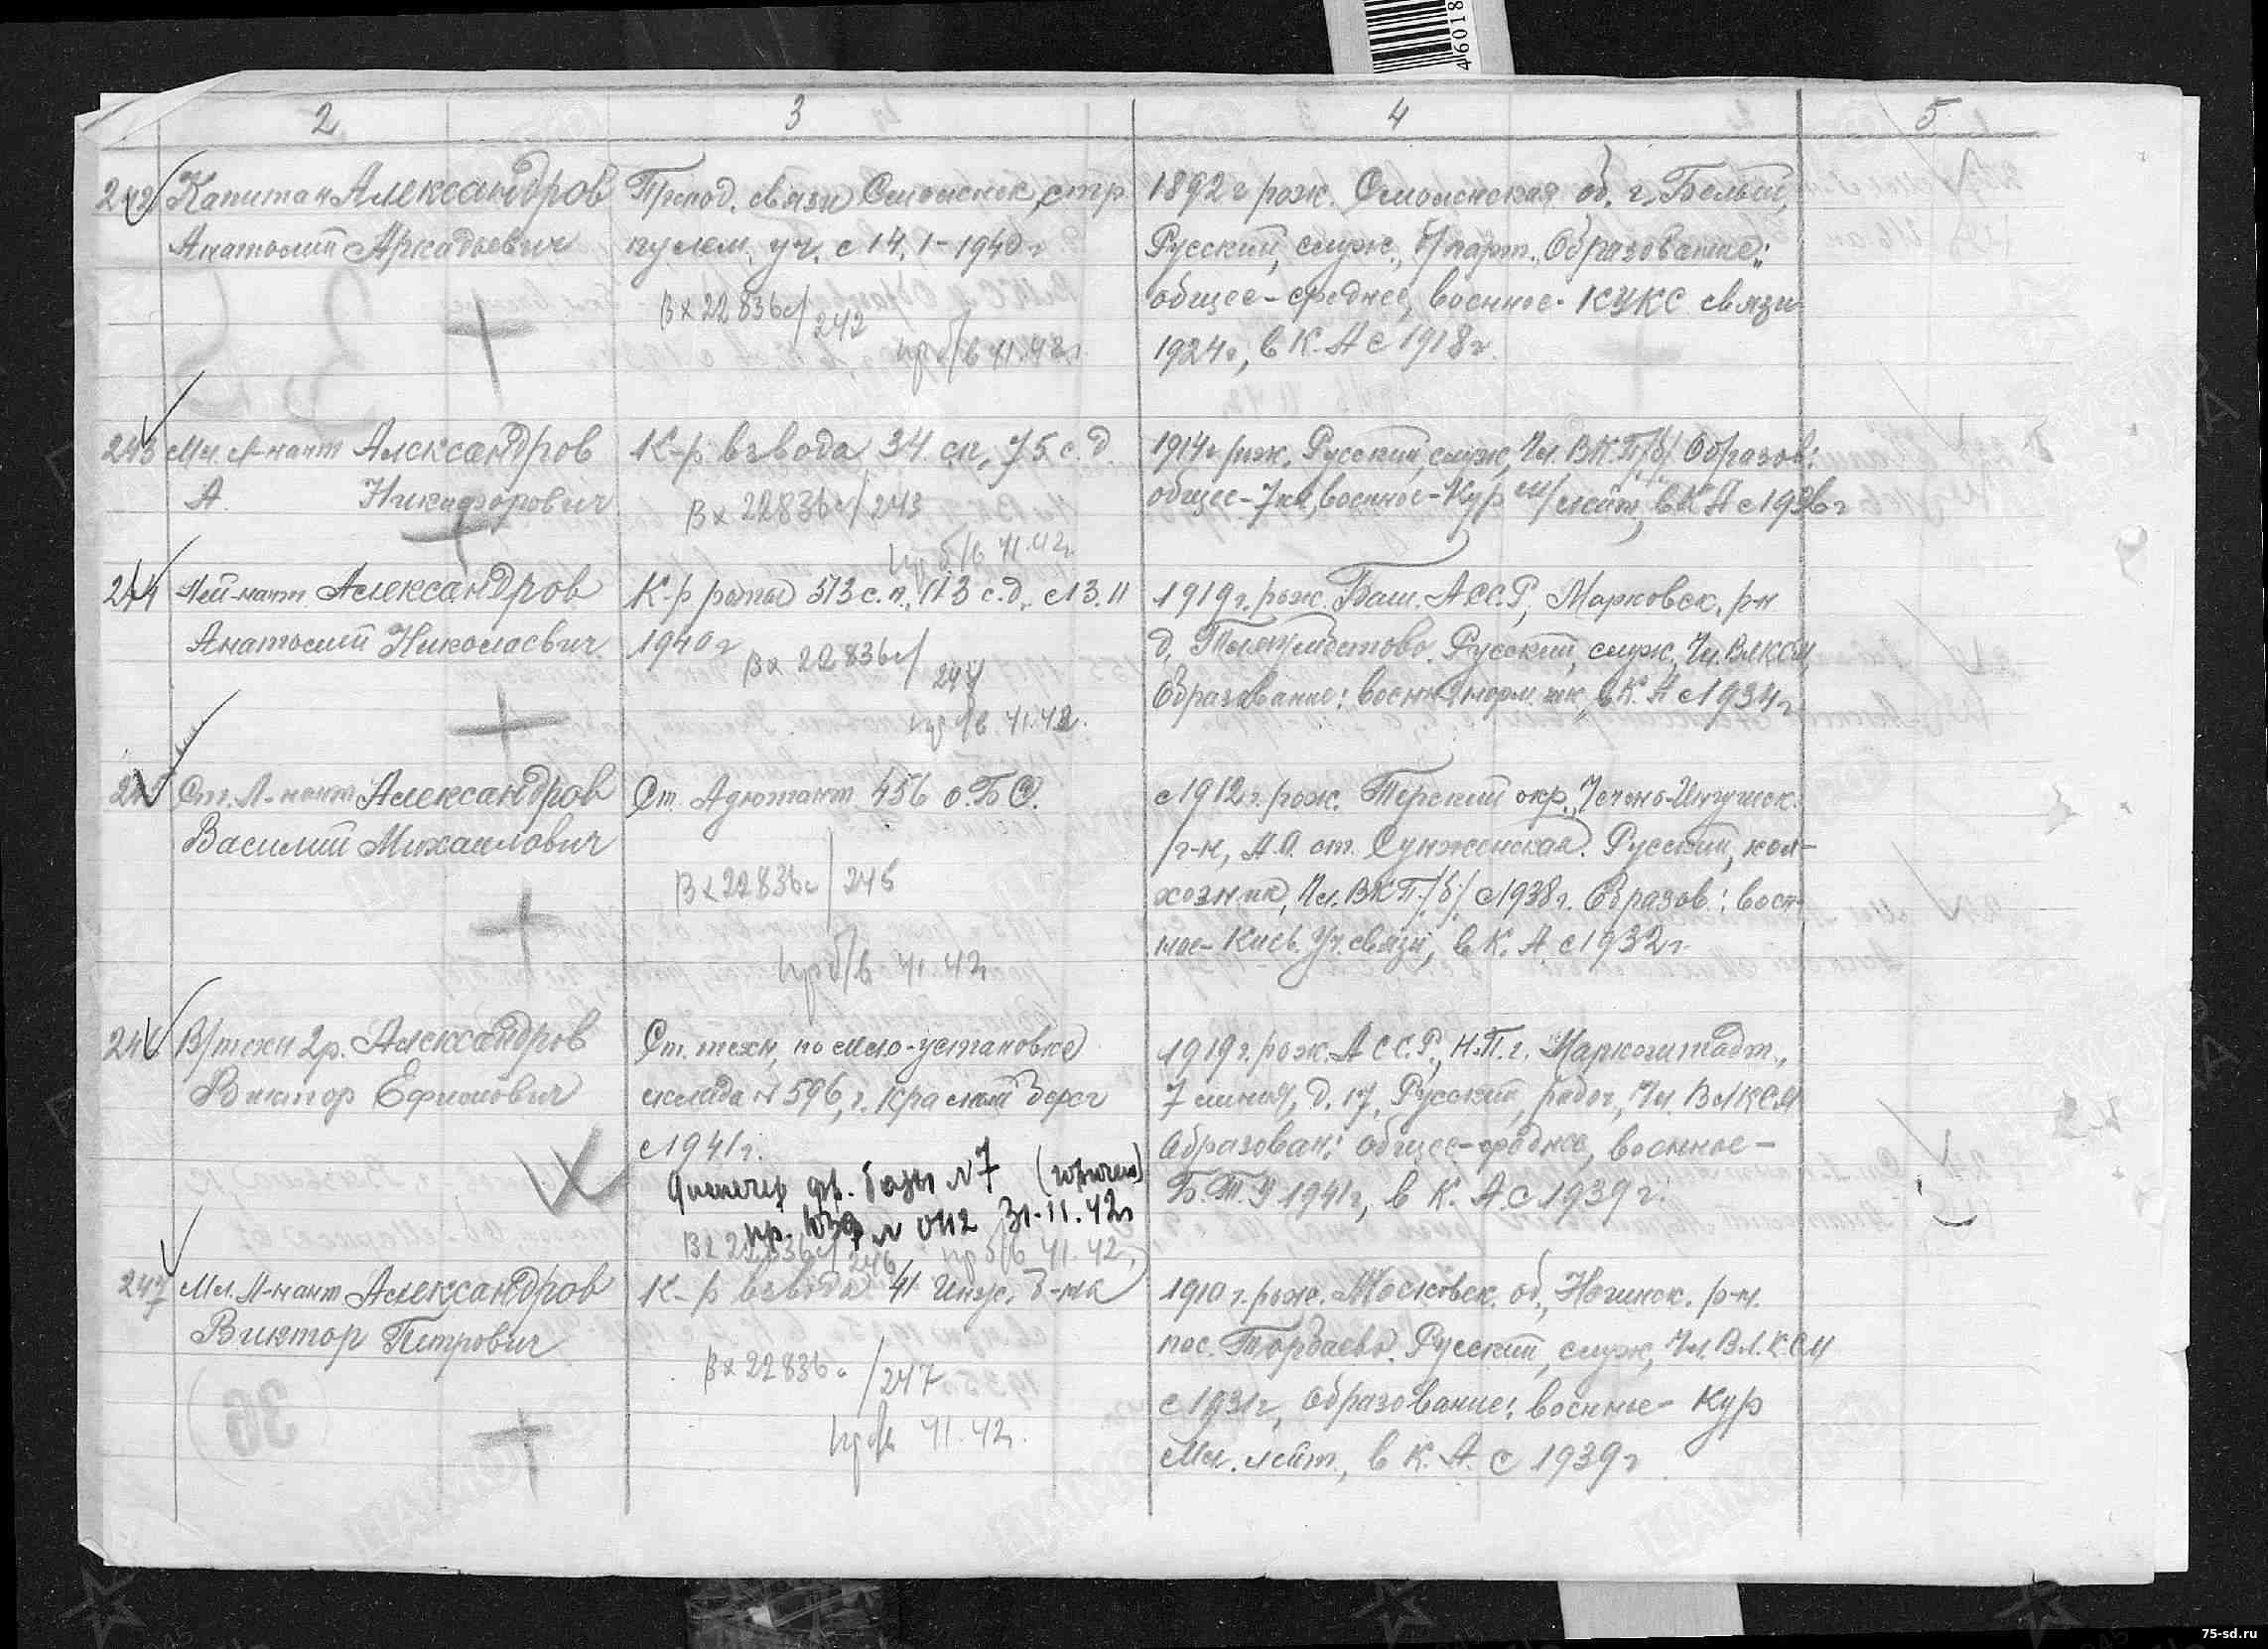 46018
2 3 4 5
242 Капитан Александров
Анатолий Аркадьевич
Препод. связи Смоленск, стр.
пулем. уч. с 14.1-1940г
Вх 22836с/242
пр б/в 41.42г.
1892г рож. Смоленская об. г. Белый,
Русский, служ., б/парт., Образование:
общее-среднее, военное-КУКС связи
1924г, в К.А с 1918г.
243 Мл. Л-нант Александров
А. Никифорович
К-р взвода 34 сп, 75 с.д.
Вх 22836с/243
пр б/в 41.42г
1914г рож. Русский, служ, Чл. ВКП/б/ Образов:
общее-7кл, военное-Кур мл/лейт, в КА с 1936г
244 Лей-нант Александров
Анатолий Николаевич
К-р роты 513 с.п., 113 с.д., с 13.11
1940г
Вх 22836с/244
пр б/в 41.42г.
1919г. рож. Баш. АССР, Марковск. р-н
Русский, служ, Чл. ВЛКСМ
Образование: в К.А с 1934г
245 Ст. Л-нант Александров
Василий Михаилович
Ст. Адютант 456 о.БС.
Вх 22836с/245
пр б/в 41.42г
с 1912г. рож. Терский окр., Чечено-Ингушск.
р-н, А.О. ст. Сунженская. Русский, кол-
хозник, Чл. ВКП/б/ с 1938г. Образов: воен-
ное-Киев. Уч. связи, в К.А. с 1932г.
246 В/техн 2р. Александров
Виктор Ефимович
Ст. техн, по мото-установке
склада н 596, г. Красный
с 1941г.
фр. базы №7 (горючего)
пр. № 0112 31.11.42г
Вх 22836с/246 пр б/в 41.42г
1919г. рож. АССР, Н.П. г. Марксштадт.,
7 линия, д. 17, Русский, рабоч, Чл. ВЛКСМ
Образован: общее-среднее, военное-
Б.Т.У 1941г, в К.А с 1939г.
247 Мл. Л-нант Александров
Виктор Петрович
К-р взвода 41 Инж. б-на
Вх 22836с/247
пр б/в 41.42г.
1910г. рож. Московск. об., Ногинск. р-н.
пос. Русский, служ, Чл. ВЛКСМ
с 1931г, Образование: военное-Кур
Мл. лейт., в К.А. с 1939г
(36)
75-sd.ru